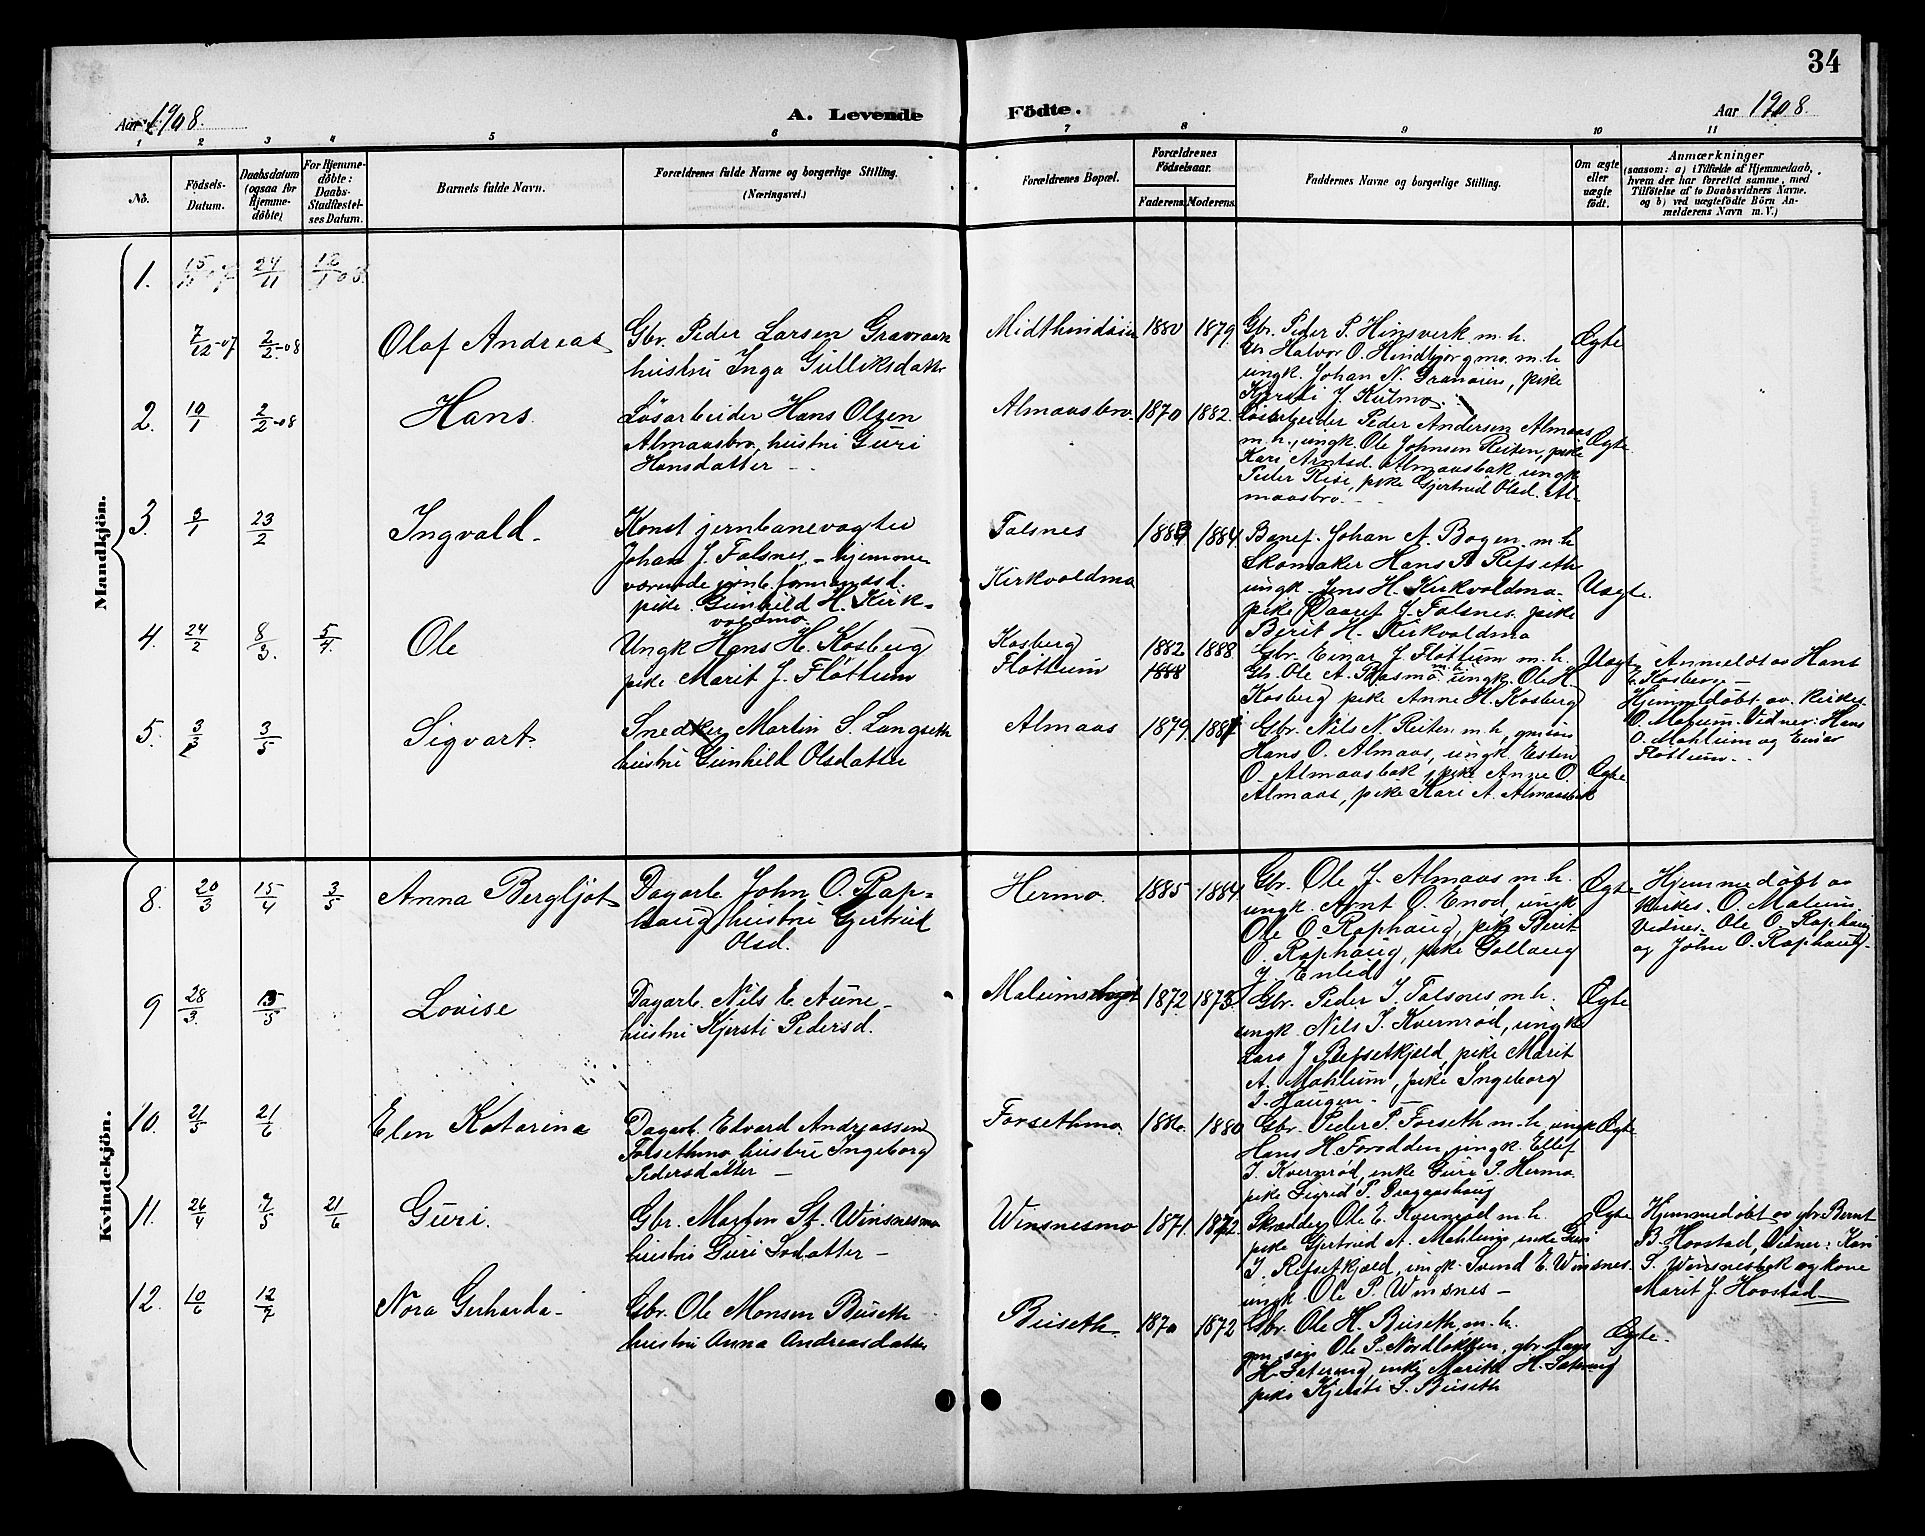 34
Aar 1908.
A. Levende
Födte.
Aar 1908.
1 2 3 4 5 6 7 8 9 10 11
No.
Födsels-
Datum.
Daabsdatum
(ogsaa for
Hjemme-
döbte)
For Hjemme-
döbte:
Daabs-
Stadfæstel-
ses Datum.
Barnets fulde Navn.
Forældrenes fulde Navne og borgerlige Stilling.
(Næringsvei.)
Forældrenes Bopæl.
Forældrenes
Födselsaar.
Faderens. Moderens.
Faddernes Navne og borgerlige Stilling.
Om ægte
eller
uægte
født.
Anmærkninger
(saasom: a) i Tilfælde af Hjemmedaab,
hvem der har forrettet samme, med
Tilföielse af to Daabsvidners Navne.
og b) ved uægtefödte Börn An-
melderens Navn m. V.)
Mandkjön.
1. 24/11
7/12-07 2/2-08 Olaf Andreas
Gbr. Peder Larsen Gravraak
hustru Inga Gulliksdatter
1880 1879
Gbr. Peder P. Hinsverk m. h.
Gbr Halvor O. Hindbjørgmo m. h
ungk. Johan N. Granøien, pike
Kjersti J. Kulmo.
Ægte
2. 19/1 2/2-08 Hans.
Løsarbeider Hans Olsen
Almaasbro, hustru Guri
Hansdatter -
Almaasbro. 1870 1882.
Løsarbeider Peder Andersen Almaas
m. h., ungk. Ole Johnsen Reiten, pike
Kari Arntsd. Almaasbak ungk
Peder Rise, pike Gjertrud Olsd. Al-
maasbro. -
Ægte.
3. 23/2 Ingvald.
Konst jernbanevogter
Johan J. Talsnes - hjemme
værende jernb. formandsd.
pike. Gunhild H. Kirk-
voldmo.
Talsnes
Kirkvoldmo
1884
Banef. Johan A. Bogen m. h
Skomaker Hans A Refseth
ungk. Jens H. Kirkvoldmo.
pike Maaret J. Talsnes. pike
Berit H. Kirkvoldmo
Uægte.
4. 24/2 8/3. 5/4. Ole
Ungk Hans H. Kosberg
pike Marit J. Fløttum
Kosberg
Fløttum
1882 1888
1888
Gbr. Einar J. Fløttum m. h.
Gb. Ole A. Moasmo m. h. ungk. Ole H.
Kosberg pike Anne H. Kosberg
Uægte Anmeldt av Hans
H. Kosberg -
Hjemmedøbt av kirkes.
O. Malum. Vidner: Hans
O. Mahlum og Einar
Fløttum. -
5. 3/3 3/5 Sigvart.
Snedker Martin S. Langseth
hustru Gunhild Olsdatter
Almaas 1879.
Gbr. Nils N. Reiten m. h,
Hans O. Almaas, ungk. Esten
O. Almaasbak, pike Anne O.
Almaas, pike Kari A. Almaasbak
Ægte
Kvindekjön.
8. 20/3 15/4 3/5 Anna Bergljot
Dagarb. John O. Rap-
haug hustru Gjertrud
Olsd.
Hermo. 1885 1884
Gbr. Ole J. Almaas m. h.
ungk. Arnt O. Enod, ungk
Ole O Raphaug, pike Berit
O. Raphaug, pike Gollaug
J. Enlid
Ægte
Hjemmedøbt av
kirkes. O. Malum
Vidnes. Ole O. Raphaug
og John O. Raphaug.
9 28/3. Lovise
Dagarb. Nils E. Aune -
hustru Kjersti Pedersd.
1872 1873
Gbr. Peder J. Talsnes m. h.
ungk. Nils J. Kvernrød, ungk
Lars J Refsetkjeld, pike Marit
A. Mahlum, pike Ingeborg
J. Haugen. -
Ægte
10. 21/5 21/6 Elen Katarina
Dagarb. Edvard Andreassen
Forsethmo hustru Ingeborg
Pedersdatter -
Forsethmo. 1880
Gbr. Peder P. Forseth m. h, ungk
Hans H. Forodden, ungk. Ellef
J. Kvernrød, enke Guri P. Hermo.
pike Sigrid P. Draggashaug
Ægte
11. 26/4 7/5 21/6 Guri.
Gbr. Morten St. Winsnesmo
hustru Guri Ivdatter -
Winsnesmo 1871. 1872.
Skrædder Ole E. Kvernrød m. h.
pike Gjertrud A. Mahlum, enke Guri
J. Refsetkjeld, ungk. Svend E. Winsnes.
ungk. Ole P. Winsnes -
Ægte
Hjemmedøbt av gbr. Bernt
B. Hovstad, Vidner: Kari
S. Winsnesbek og kone
Marit J. Hovstad -
12. 10/6 12/7 Nora Gerharda -
Gbr. Ole Monsen Buseth
hustru Anna Andreasdatter
Buseth. 1870 1872
Gbr. Ole H. Buseth, m. h.
Ole P. Nordløkken, gbr.
H. enke Marit H.
pike Kjersti S. Buseth
Ægte.